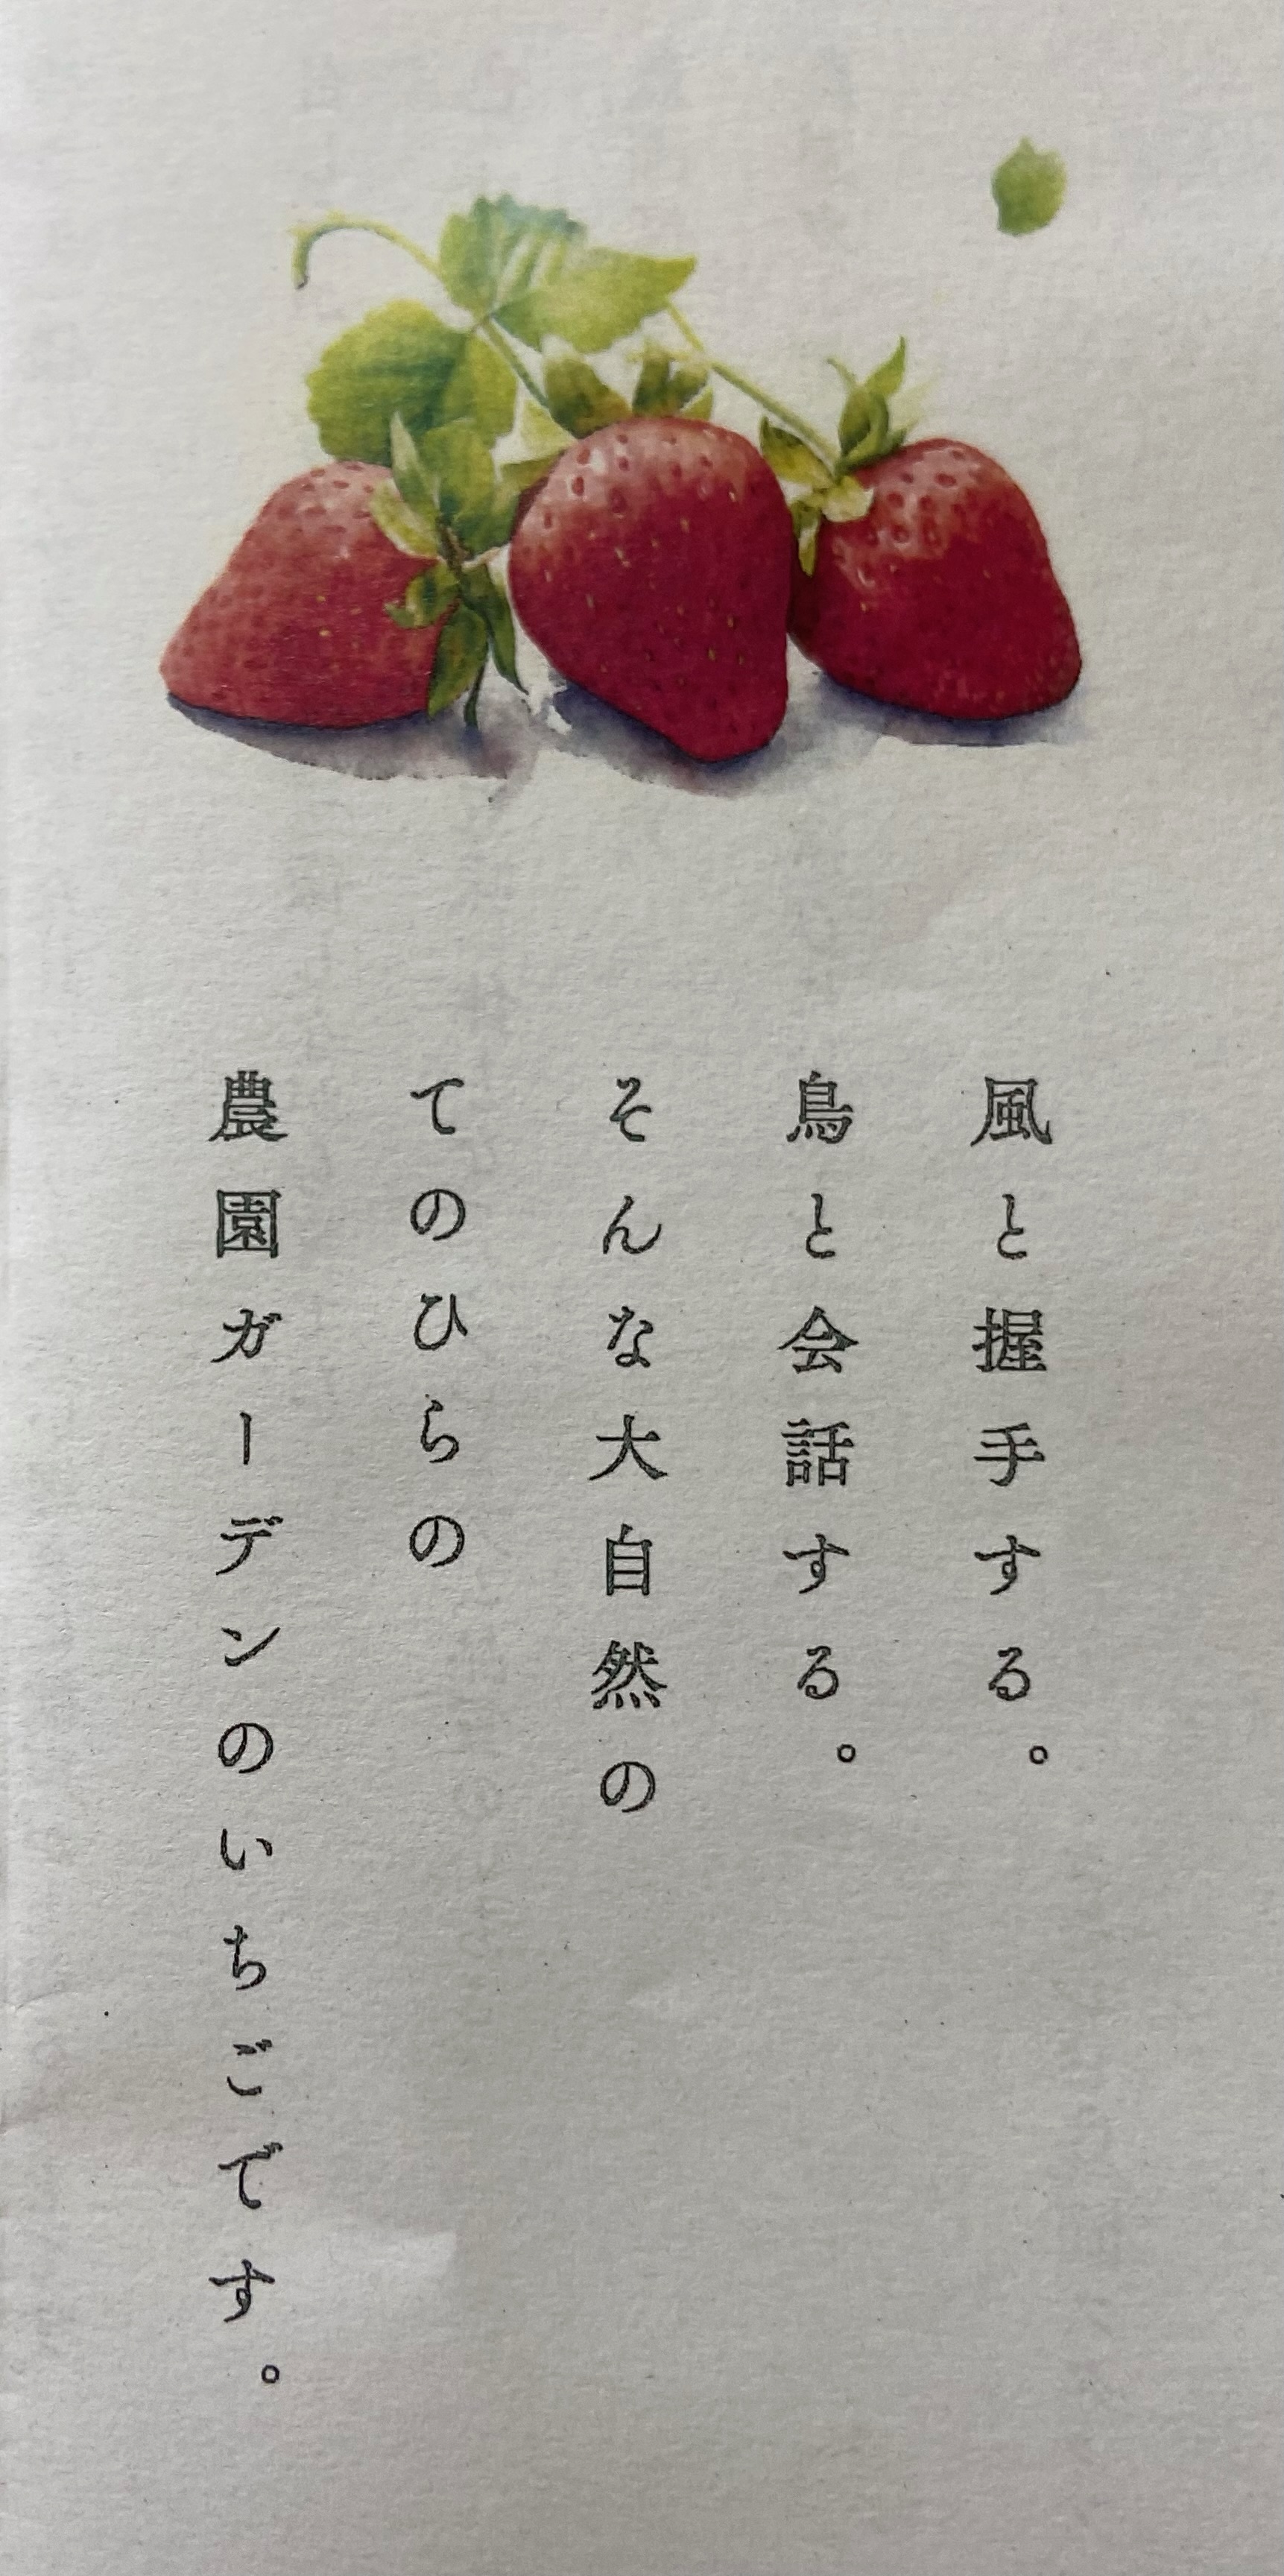 風と握手する。
鳥と会話する。
そんな大自然の
てのひらの
農園ガーデンのいちごです。